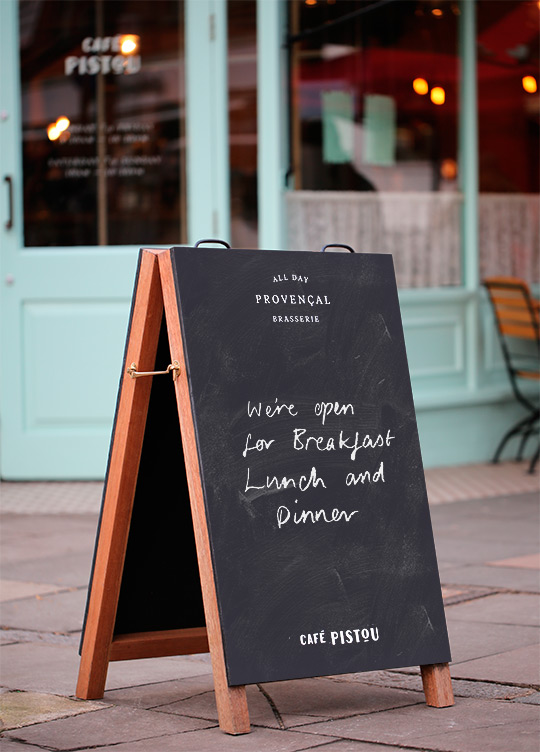 CAFÉ
PISTOU
ALL DAY
PROVENÇAL
BRASSERIE
We're open
for Breakfast
Lunch and
Dinner
CAFÉ PISTOU